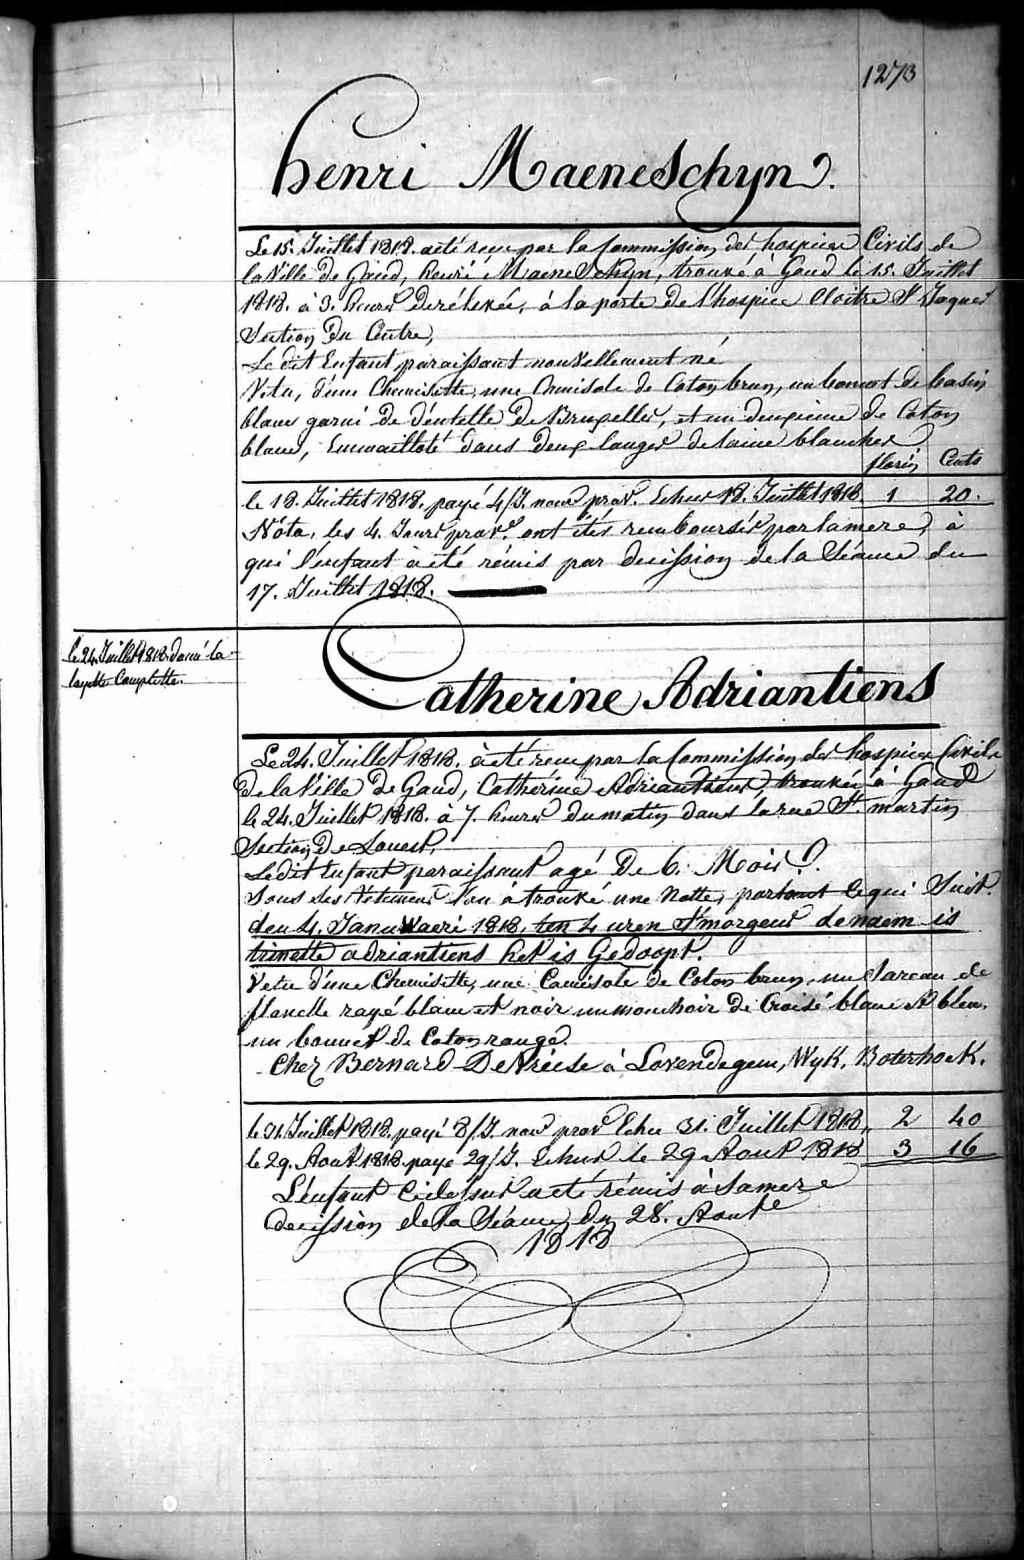 1273
Henri Maeneschyn.
Le 15. Juillet 1818. a été reçu par la Commission des hospices Civils de
la Ville de Gand, henri Maeneschyn, trouvé à Gand le 15. Juillet
1818. à 3. heures de rélevée, à la porte de l'hospice Cloitre St Jaques
Section du Centre,
Le dit Enfant paraissant nouvellement né
Vetu, d'une Chemisette, une Camisole de Coton brun, un bonnet de basin
blanc garni de déntelle de Bruxelles, et un deuxieme de Coton
blanc, Emmailloté dans deux langes de laine blanches
florin Cents
le 18. Juillet 1818. payé 4/J. nour prov. Echus 18. Juillet 1818 1 20.
Nóta, les 4. Jours prov.e ont étés remboursés par la mere, à
qui l'enfant à été rémis par decission de la Séance du
17. Juillet 1818.
le 24 Juillet 1818 donné la
layette Complette.
Catherine Adriantiens
Le 24. Juillet 1818. à été reçu par la Commission des hospices Civils
de la Ville de Gand, Cathérine Adriantiens, trouvée à Gand
le 24. Juillet 1818. à 7. heures du matin dans la rue St. martin
Section de Louest,
Le dit Enfant paraissant agé De 6. Mois
Sous ses Vétemens l'on à trouvé une Notte, portant ce qui Suit.
den 4. Januwaeri 1818. ten 4 uren S'morgens de naem is
trinette adriantiens het is Gedoopt.
Vetu d'une Chemisette, une Camisole de Coton brun, un Sareau de
flanelle rayé blanc et noir un mouchoir de Croisé blanc & bleu,
un bonnet de Coton rouge.
Chez Bernard DeVriese à Lovendegem, Wyk, Boterhoek.
le 31. Juillet 1818. payé 8/J. nour prov Echu 31. Juillet 1818, 2 40
le 29. Aout 1818 payé 29/J. Echus le 29 Aout 1818 3 16
L'enfant Cidessus a été rémis à Sa mere
decission de la Séance du 28. Aout
1818